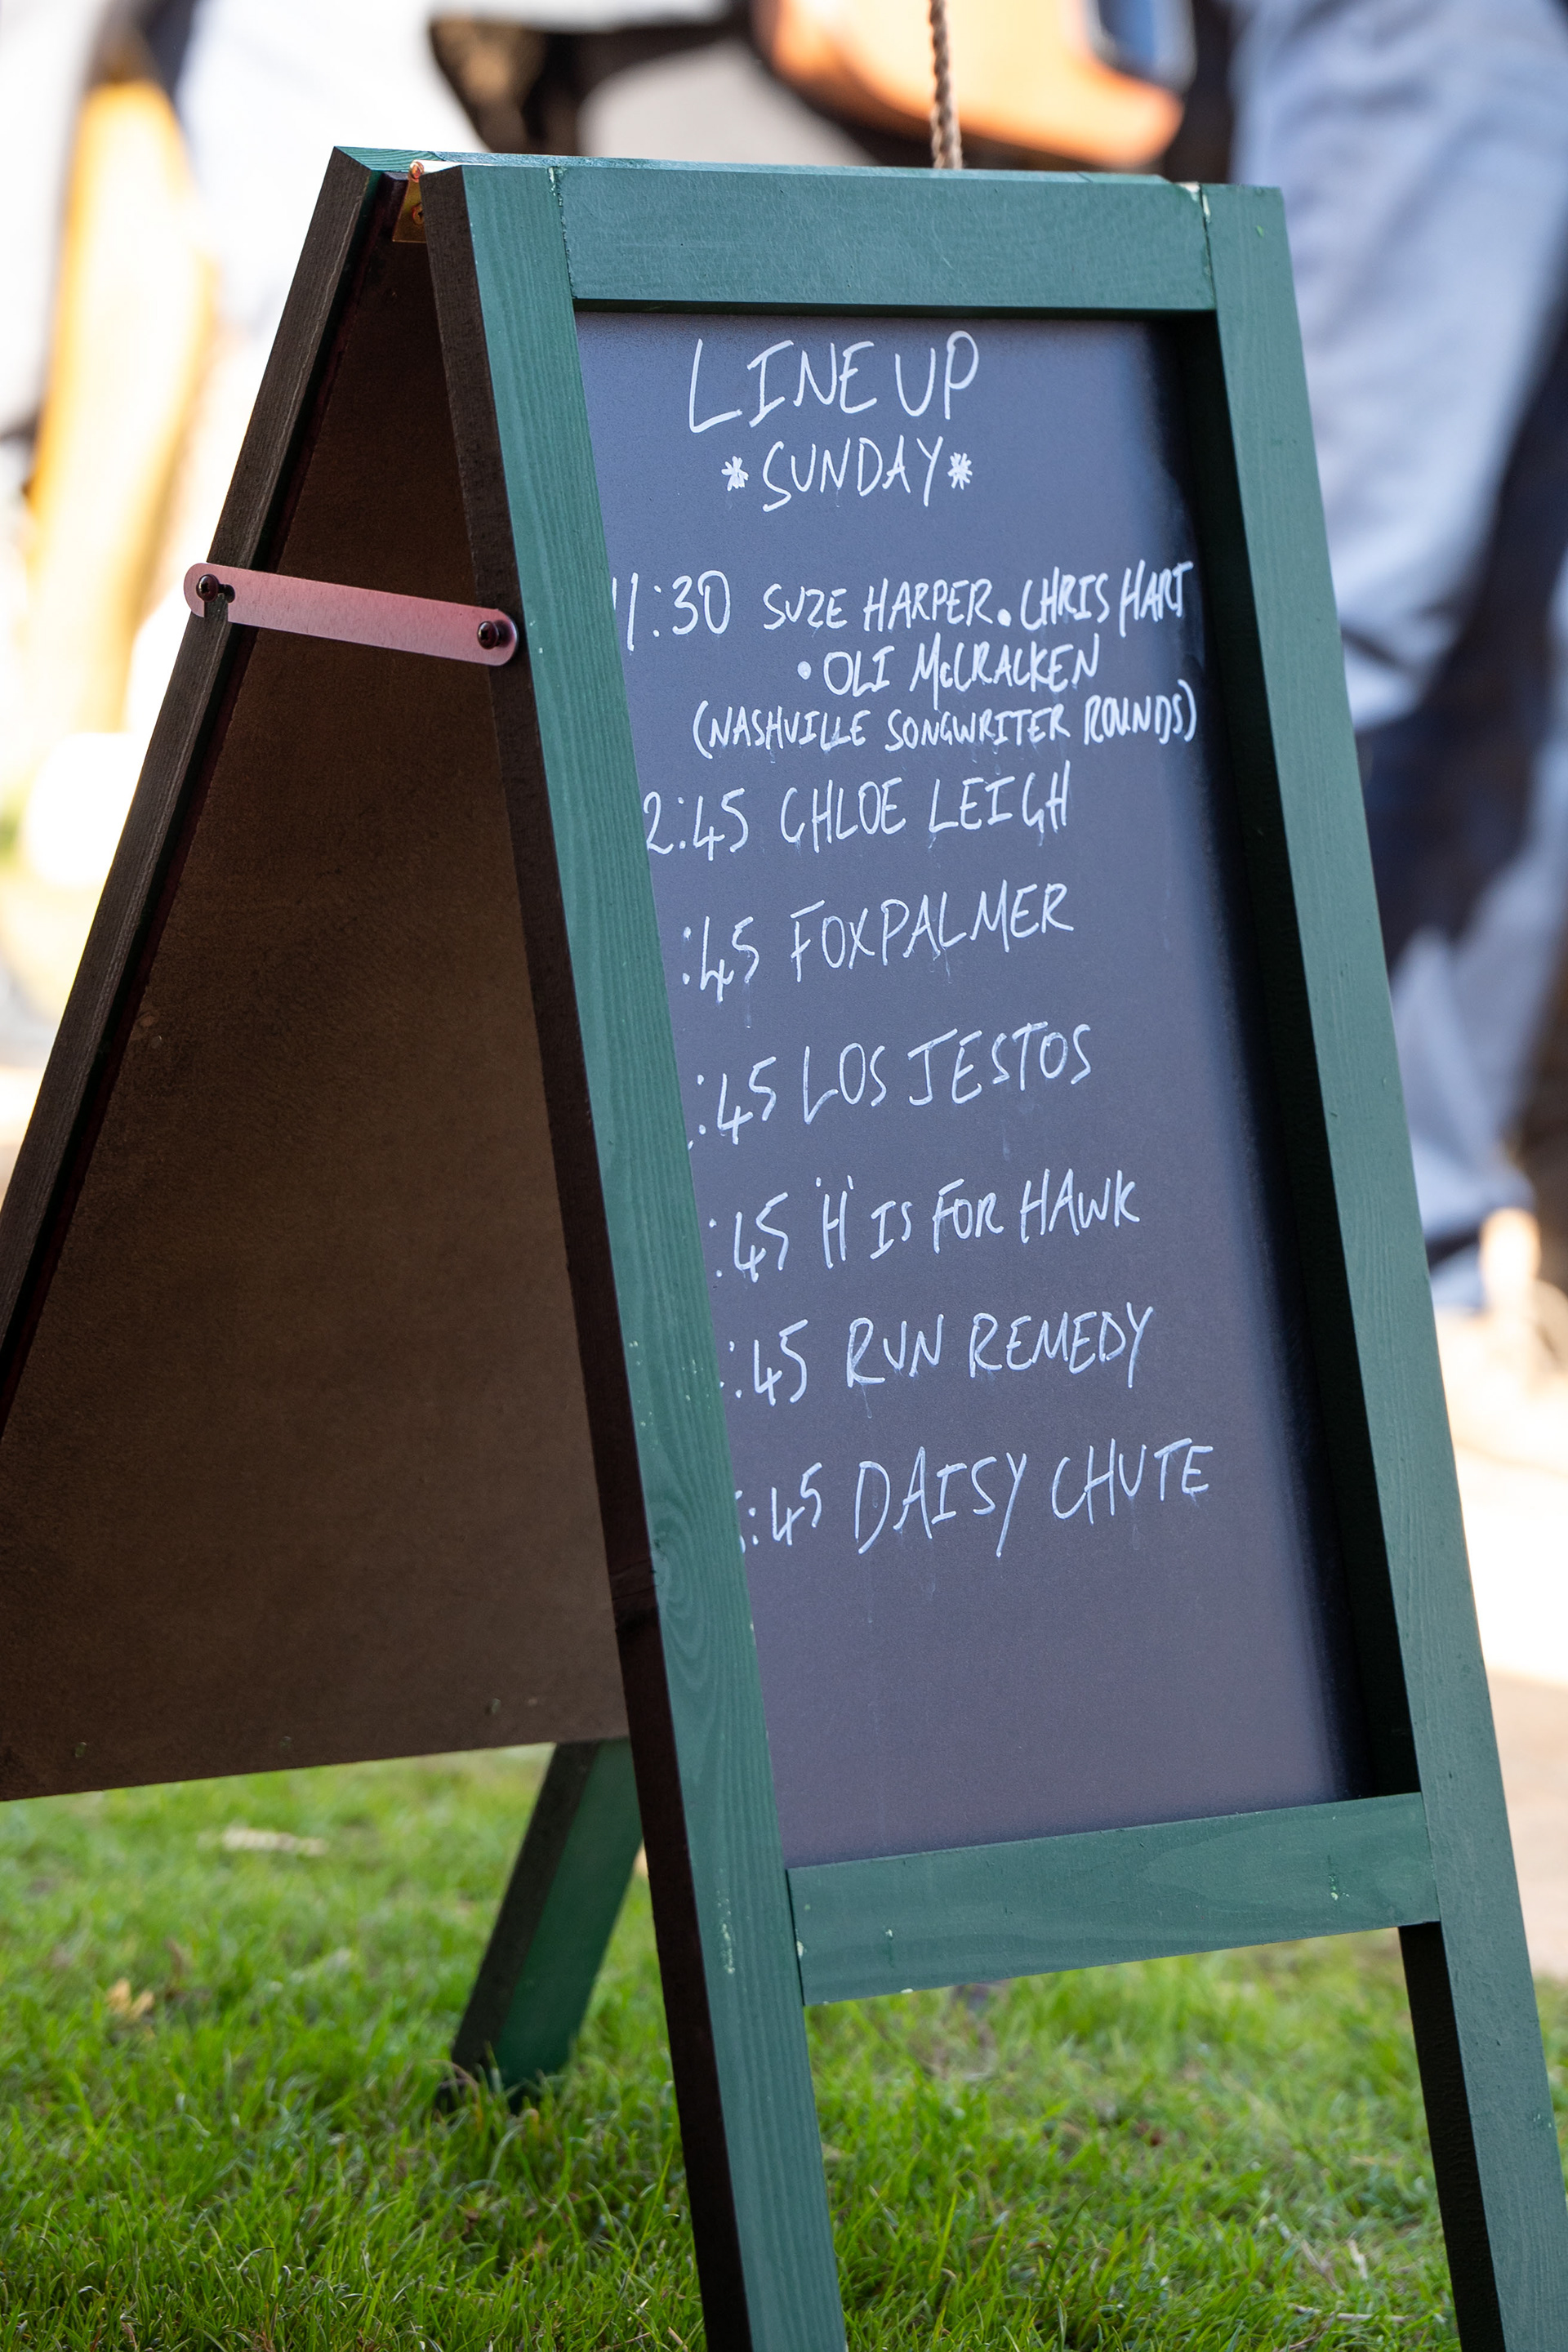 LINE UP
*SUNDAY*
11:30 SUZE HARPER • CHRIS HART
• OLI McCRACKEN
(NASHVILLE SONGWRITER ROUNDS)
2:45 CHLOE LEIGH
:45 FOXPALMER
:45 LOS JESTOS
:45 'H' IS FOR HAWK
:45 RUN REMEDY
:45 DAISY CHUTE